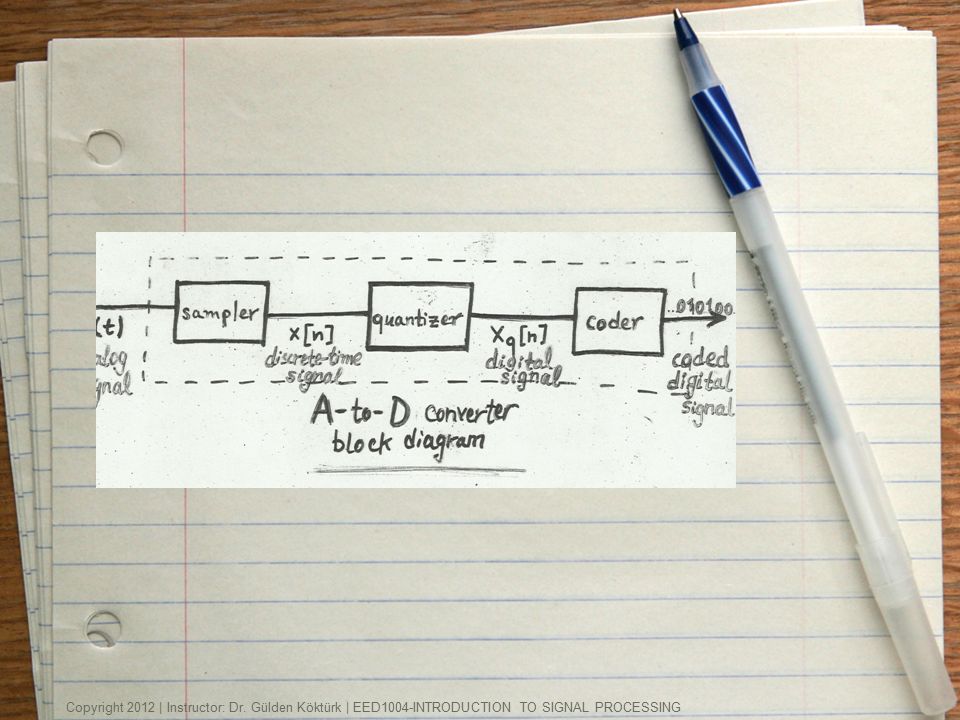 sampler
quantizer
coder
...010100
(t)
x[n]
Xq[n]
discrete-time
signal
digital
signal
coded
digital
signal
A-to-D converter
block diagram
Copyright 2012 | Instructor: Dr. Gülden Köktürk | EED1004-INTRODUCTION TO SIGNAL PROCESSING